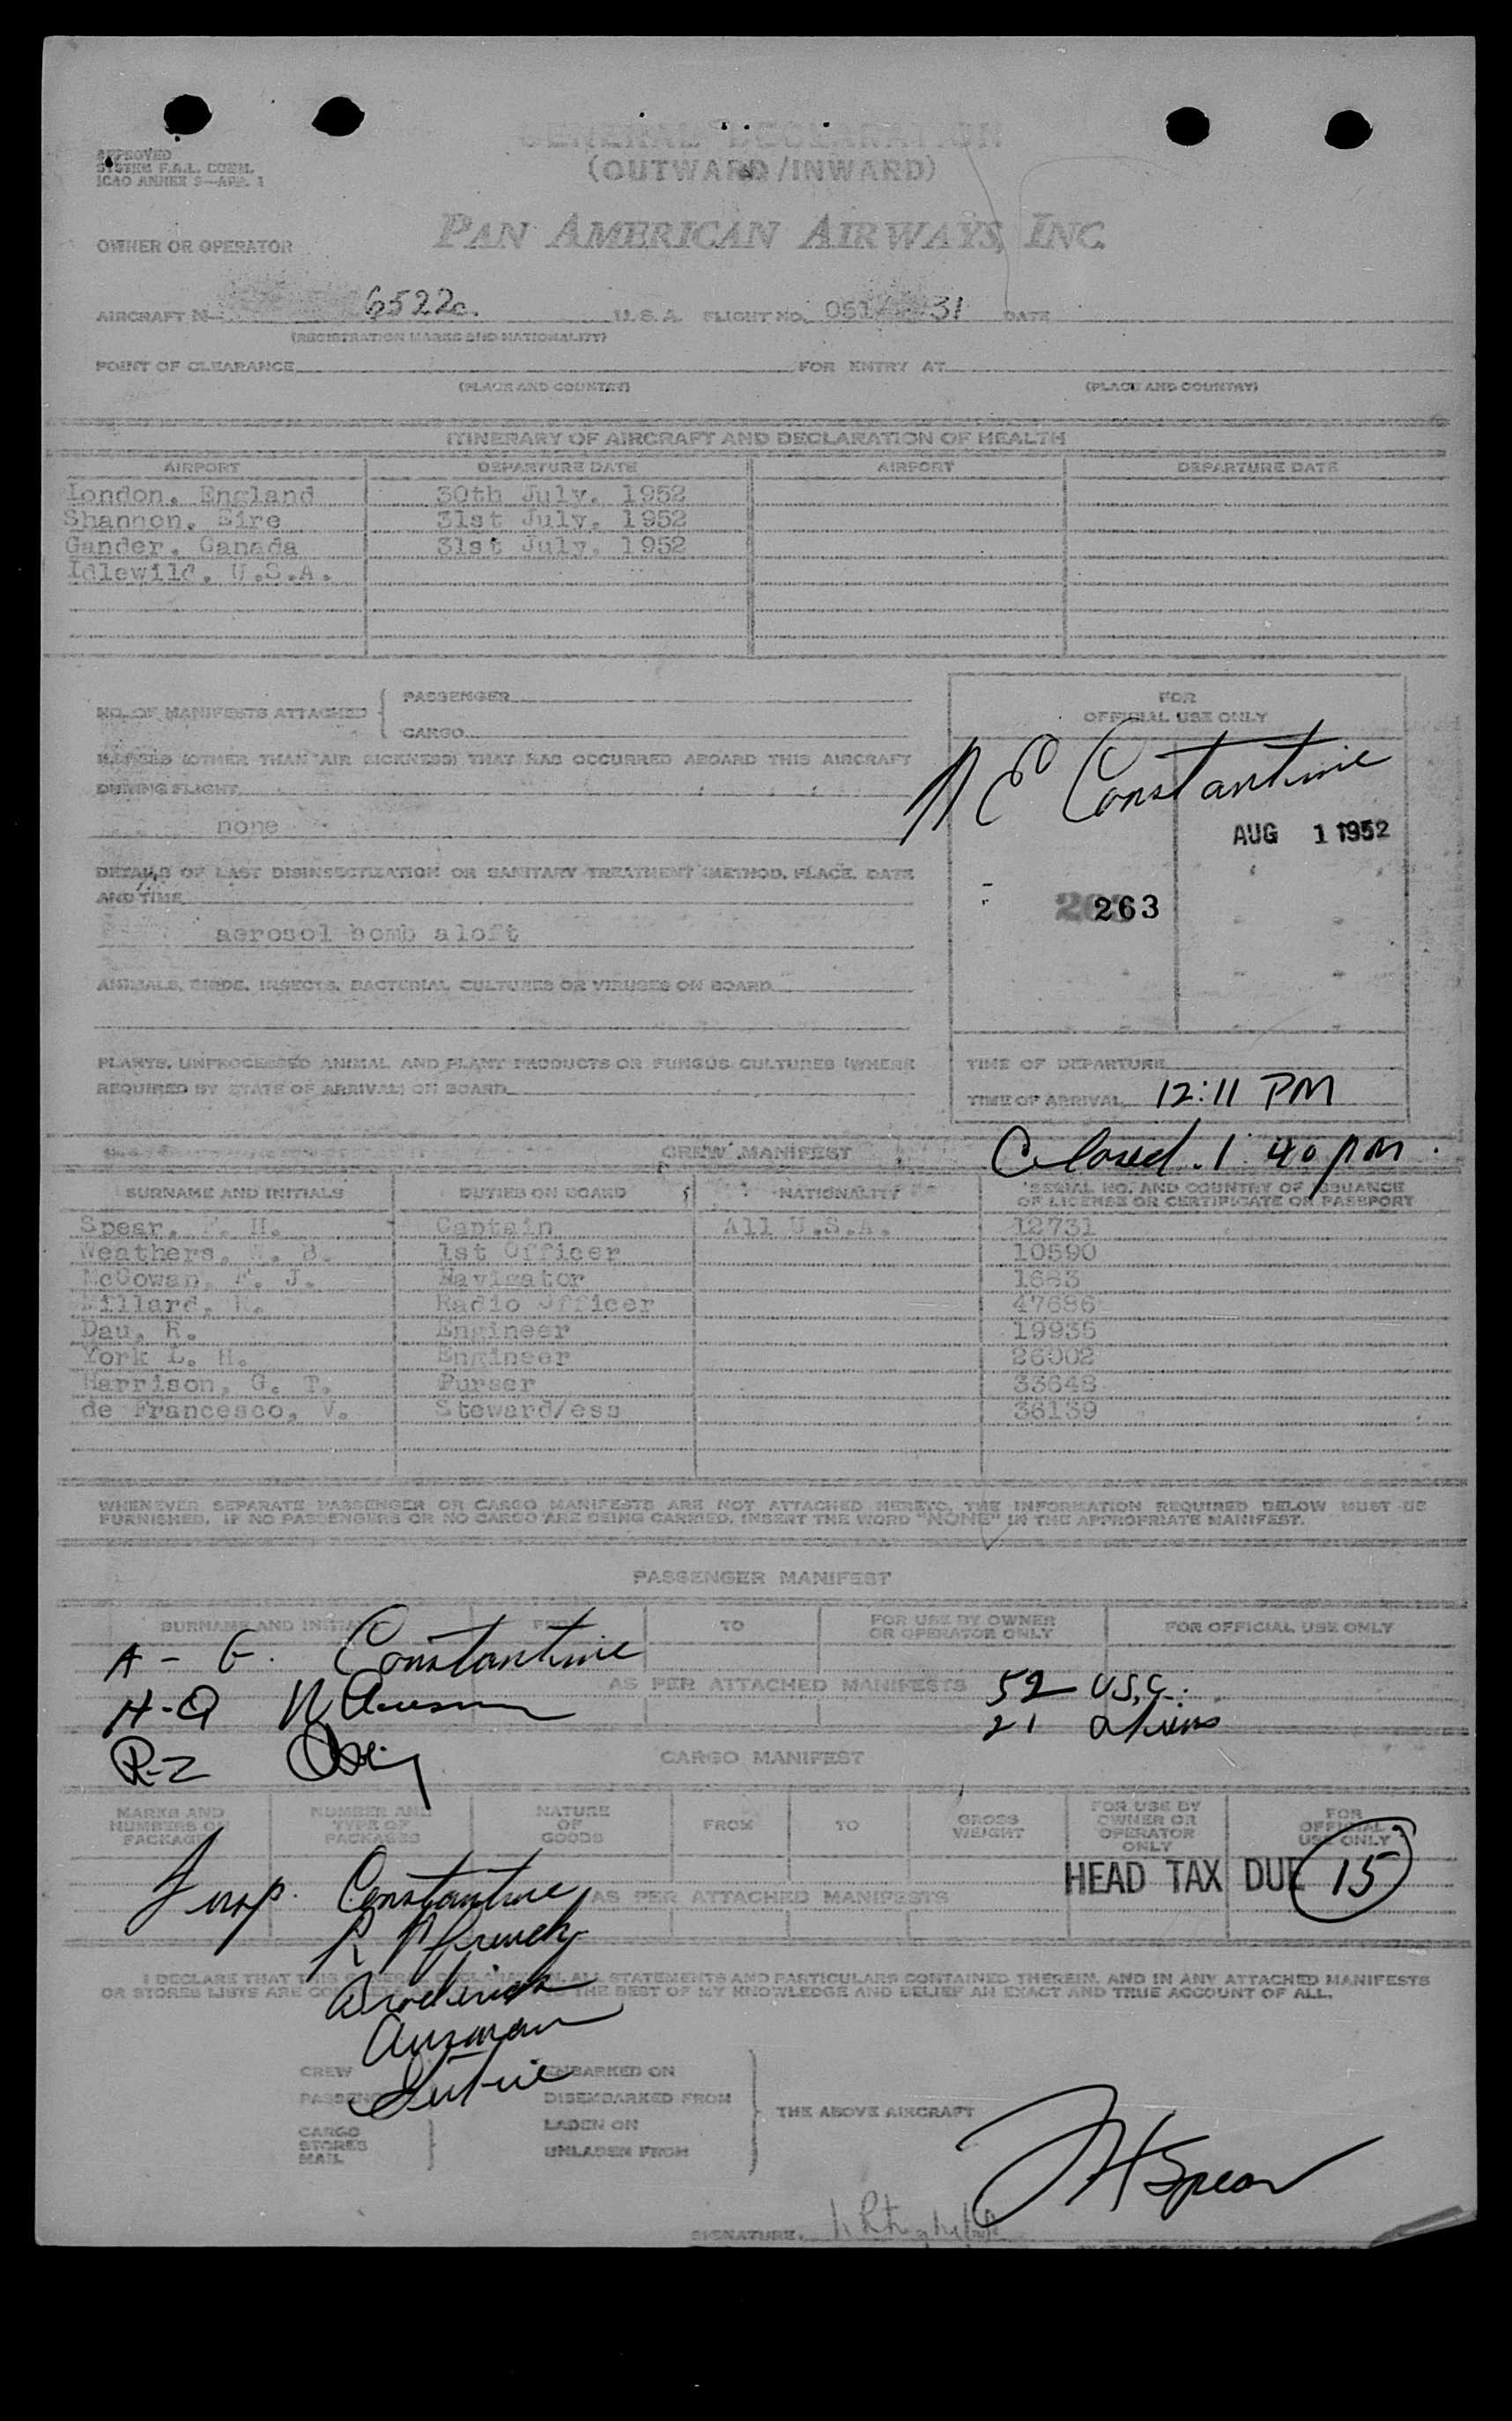 GENERAL DECLARATION
(OUTWARD/INWARD)
APPROVED
SYSTEM F.A.L. COMM.
ICAO ANNEX 9—APP. 1
OWNER OR OPERATOR
PAN AMERICAN AIRWAYS, INC.
AIRCRAFT N- 6522c. U.S.A. FLIGHT NO. 051 31 DATE
(REGISTRATION MARKS AND NATIONALITY)
POINT OF CLEARANCE FOR ENTRY AT
(PLACE AND COUNTRY) (PLACE AND COUNTRY)
ITINERARY OF AIRCRAFT AND DECLARATION OF HEALTH
AIRPORT DEPARTURE DATE AIRPORT DEPARTURE DATE
London, England 30th July, 1952
Shannon, Eire 31st July, 1952
Gander, Canada 31st July, 1952
Idlewild, U.S.A.
NO. OF MANIFESTS ATTACHED
PASSENGER
CARGO
ILLNESS (OTHER THAN AIR SICKNESS) THAT HAS OCCURRED ABOARD THIS AIRCRAFT
DURING FLIGHT
none
DETAILS OF LAST DISINSECTIZATION OR SANITARY TREATMENT (METHOD, PLACE, DATE
AND TIME
aerosol bomb aloft
ANIMALS, BIRDS, INSECTS, BACTERIAL CULTURES OR VIRUSES ON BOARD
PLANTS, UNPROCESSED ANIMAL AND PLANT PRODUCTS OR FUNGUS CULTURES (WHERE
REQUIRED BY STATE OF ARRIVAL) ON BOARD
FOR
OFFICIAL USE ONLY
Constantine
AUG 1 1952
263
TIME OF DEPARTURE
TIME OF ARRIVAL 12:11 PM
Closed. 1:40 pm.
CREW MANIFEST
SURNAME AND INITIALS DUTIES ON BOARD NATIONALITY SERIAL NO. AND COUNTRY OF ISSUANCE
OF LICENSE OR CERTIFICATE OR PASSPORT
Spear, F. H. Captain All U.S.A. 12731
Weathers, W. B. 1st Officer 10590
McGowan, F. J. Navigator 1683
Millard, R. Radio Officer 47686
Dau, R. Engineer 19935
York L. H. Engineer 26002
Harrison, G. T. Purser 33648
de Francesco, V. Steward/ess 36139
WHENEVER SEPARATE PASSENGER OR CARGO MANIFESTS ARE NOT ATTACHED HERETO, THE INFORMATION REQUIRED BELOW MUST BE
FURNISHED. IF NO PASSENGERS OR NO CARGO ARE BEING CARRIED, INSERT THE WORD "NONE" IN THE APPROPRIATE MANIFEST.
PASSENGER MANIFEST
SURNAME AND INITIALS FROM TO FOR USE BY OWNER
OR OPERATOR ONLY FOR OFFICIAL USE ONLY
A - G. Constantine
AS PER ATTACHED MANIFESTS
H-Q
52 U.S.C.
21 aliens
R-Z
CARGO MANIFEST
MARKS AND
NUMBERS ON
PACKAGES
NUMBER AND
TYPE OF
PACKAGES
NATURE
OF
GOODS
FROM
TO
GROSS
WEIGHT
FOR USE BY
OWNER OR
OPERATOR
ONLY
FOR
OFFICIAL
USE ONLY
HEAD TAX DUE 15
Insp. Constantine
AS PER ATTACHED MANIFESTS
I DECLARE THAT THIS GENERAL DECLARATION, ALL STATEMENTS AND PARTICULARS CONTAINED THEREIN, AND IN ANY ATTACHED MANIFESTS
OR STORES LISTS ARE THE BEST OF MY KNOWLEDGE AND BELIEF AN EXACT AND TRUE ACCOUNT OF ALL.
CREW EMBARKED ON
PASSENGERS DISEMBARKED FROM
THE ABOVE AIRCRAFT
CARGO
STORES
MAIL
LADEN ON
UNLADEN FROM
FHSpear
SIGNATURE.